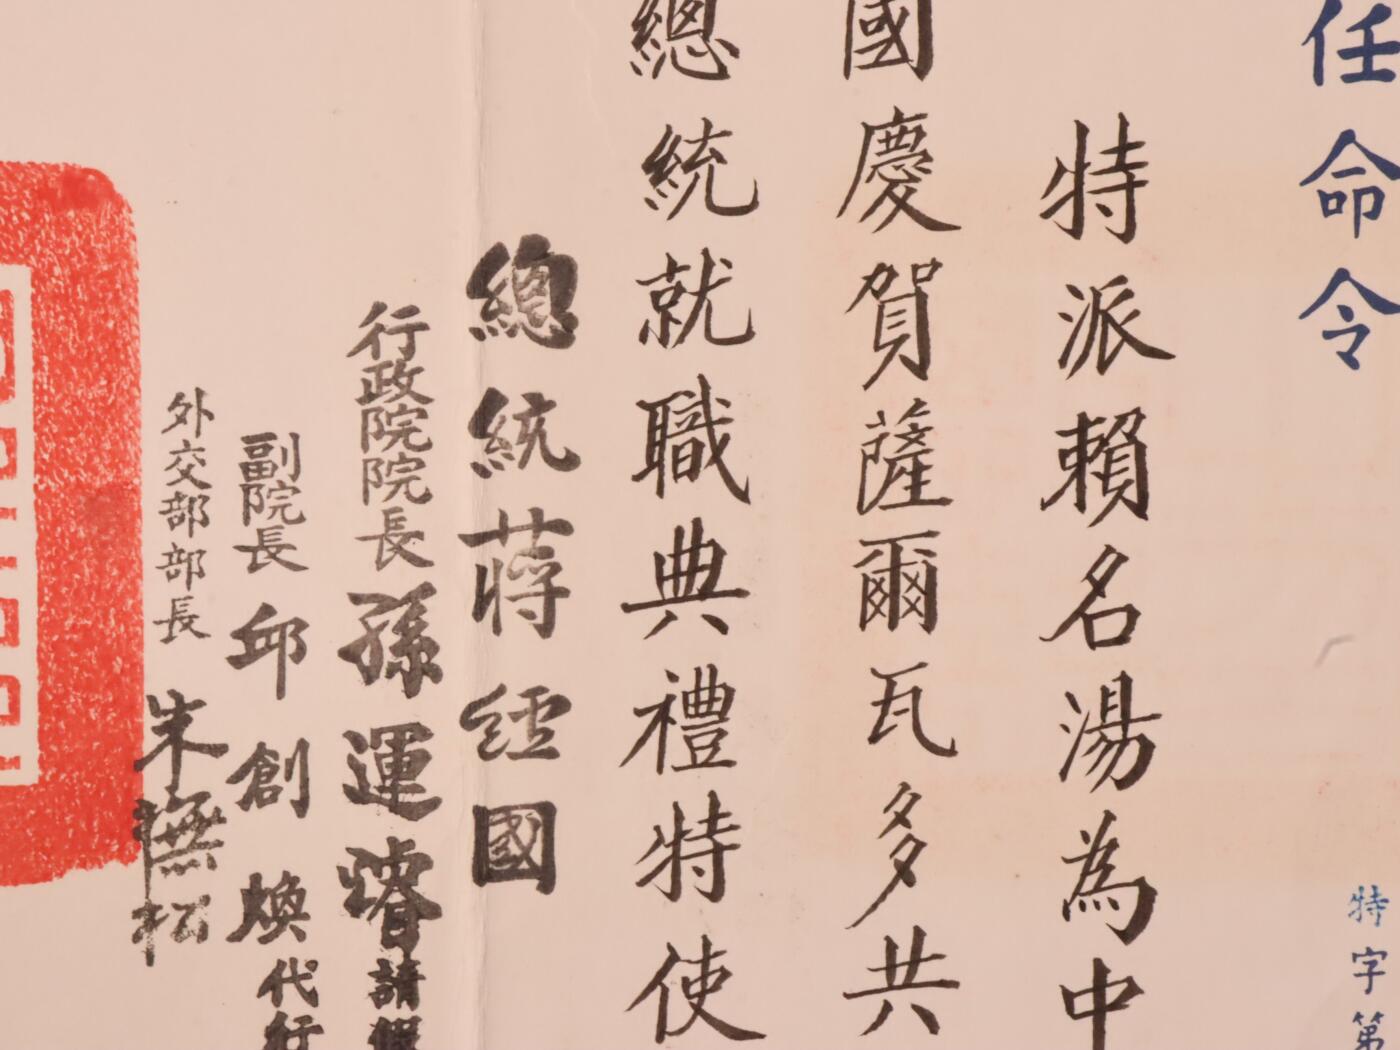 任命令
特字第
特派賴名湯為中
國慶賀薩爾瓦多共
總統就職典禮特使
總統蔣經國
行政院院長孫運璿請假
副院長邱創煥代行
外交部部長朱撫松